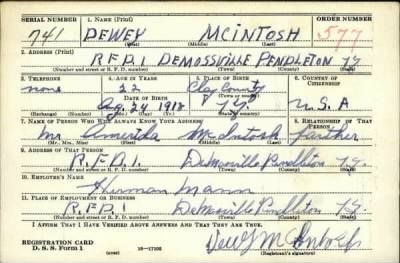 SERIAL NUMBER 1. Name (Print) ORDER NUMBER
741 DEWEY McINTOSH 577
(First) (Middle) (Last)
2. Address (Print)
R.F.D. 1 DEMOSSVILLE PENDLETON Ky.
(Number and street or R. F. D. number) (Town) (County) (State)
3. Telephone 4. Age in Years 5. Place of Birth 6. Country of Citizenship
none 22 Clay County
Date of Birth
Aug. 24, 1918 Ky. U.S.A
(Exchange) (Number) (Mo.) (Day) (Yr.) (State or country)
7. Name of Person Who Will Always Know Your Address 8. Relationship of That Person
Mr McIntosh Farther
(Mr., Mrs., Miss) (First) (Middle) (Last)
9. Address of That Person
R.F.D. 1. DeMossville Pendleton Ky.
(Number and street or R. F. D. number) (Town) (County) (State)
10. Employer's Name
Herman Mann
11. Place of Employment or Business
R.F.D. 1 DeMossville Pendleton Ky.
(Number and street or R. F. D. number) (Town) (County) (State)
I Affirm That I Have Verified Above Answers and That They Are True.
REGISTRATION CARD
D. S. S. Form 1 (over) 16—17105 Dewey McIntosh
(Registrant's signature)